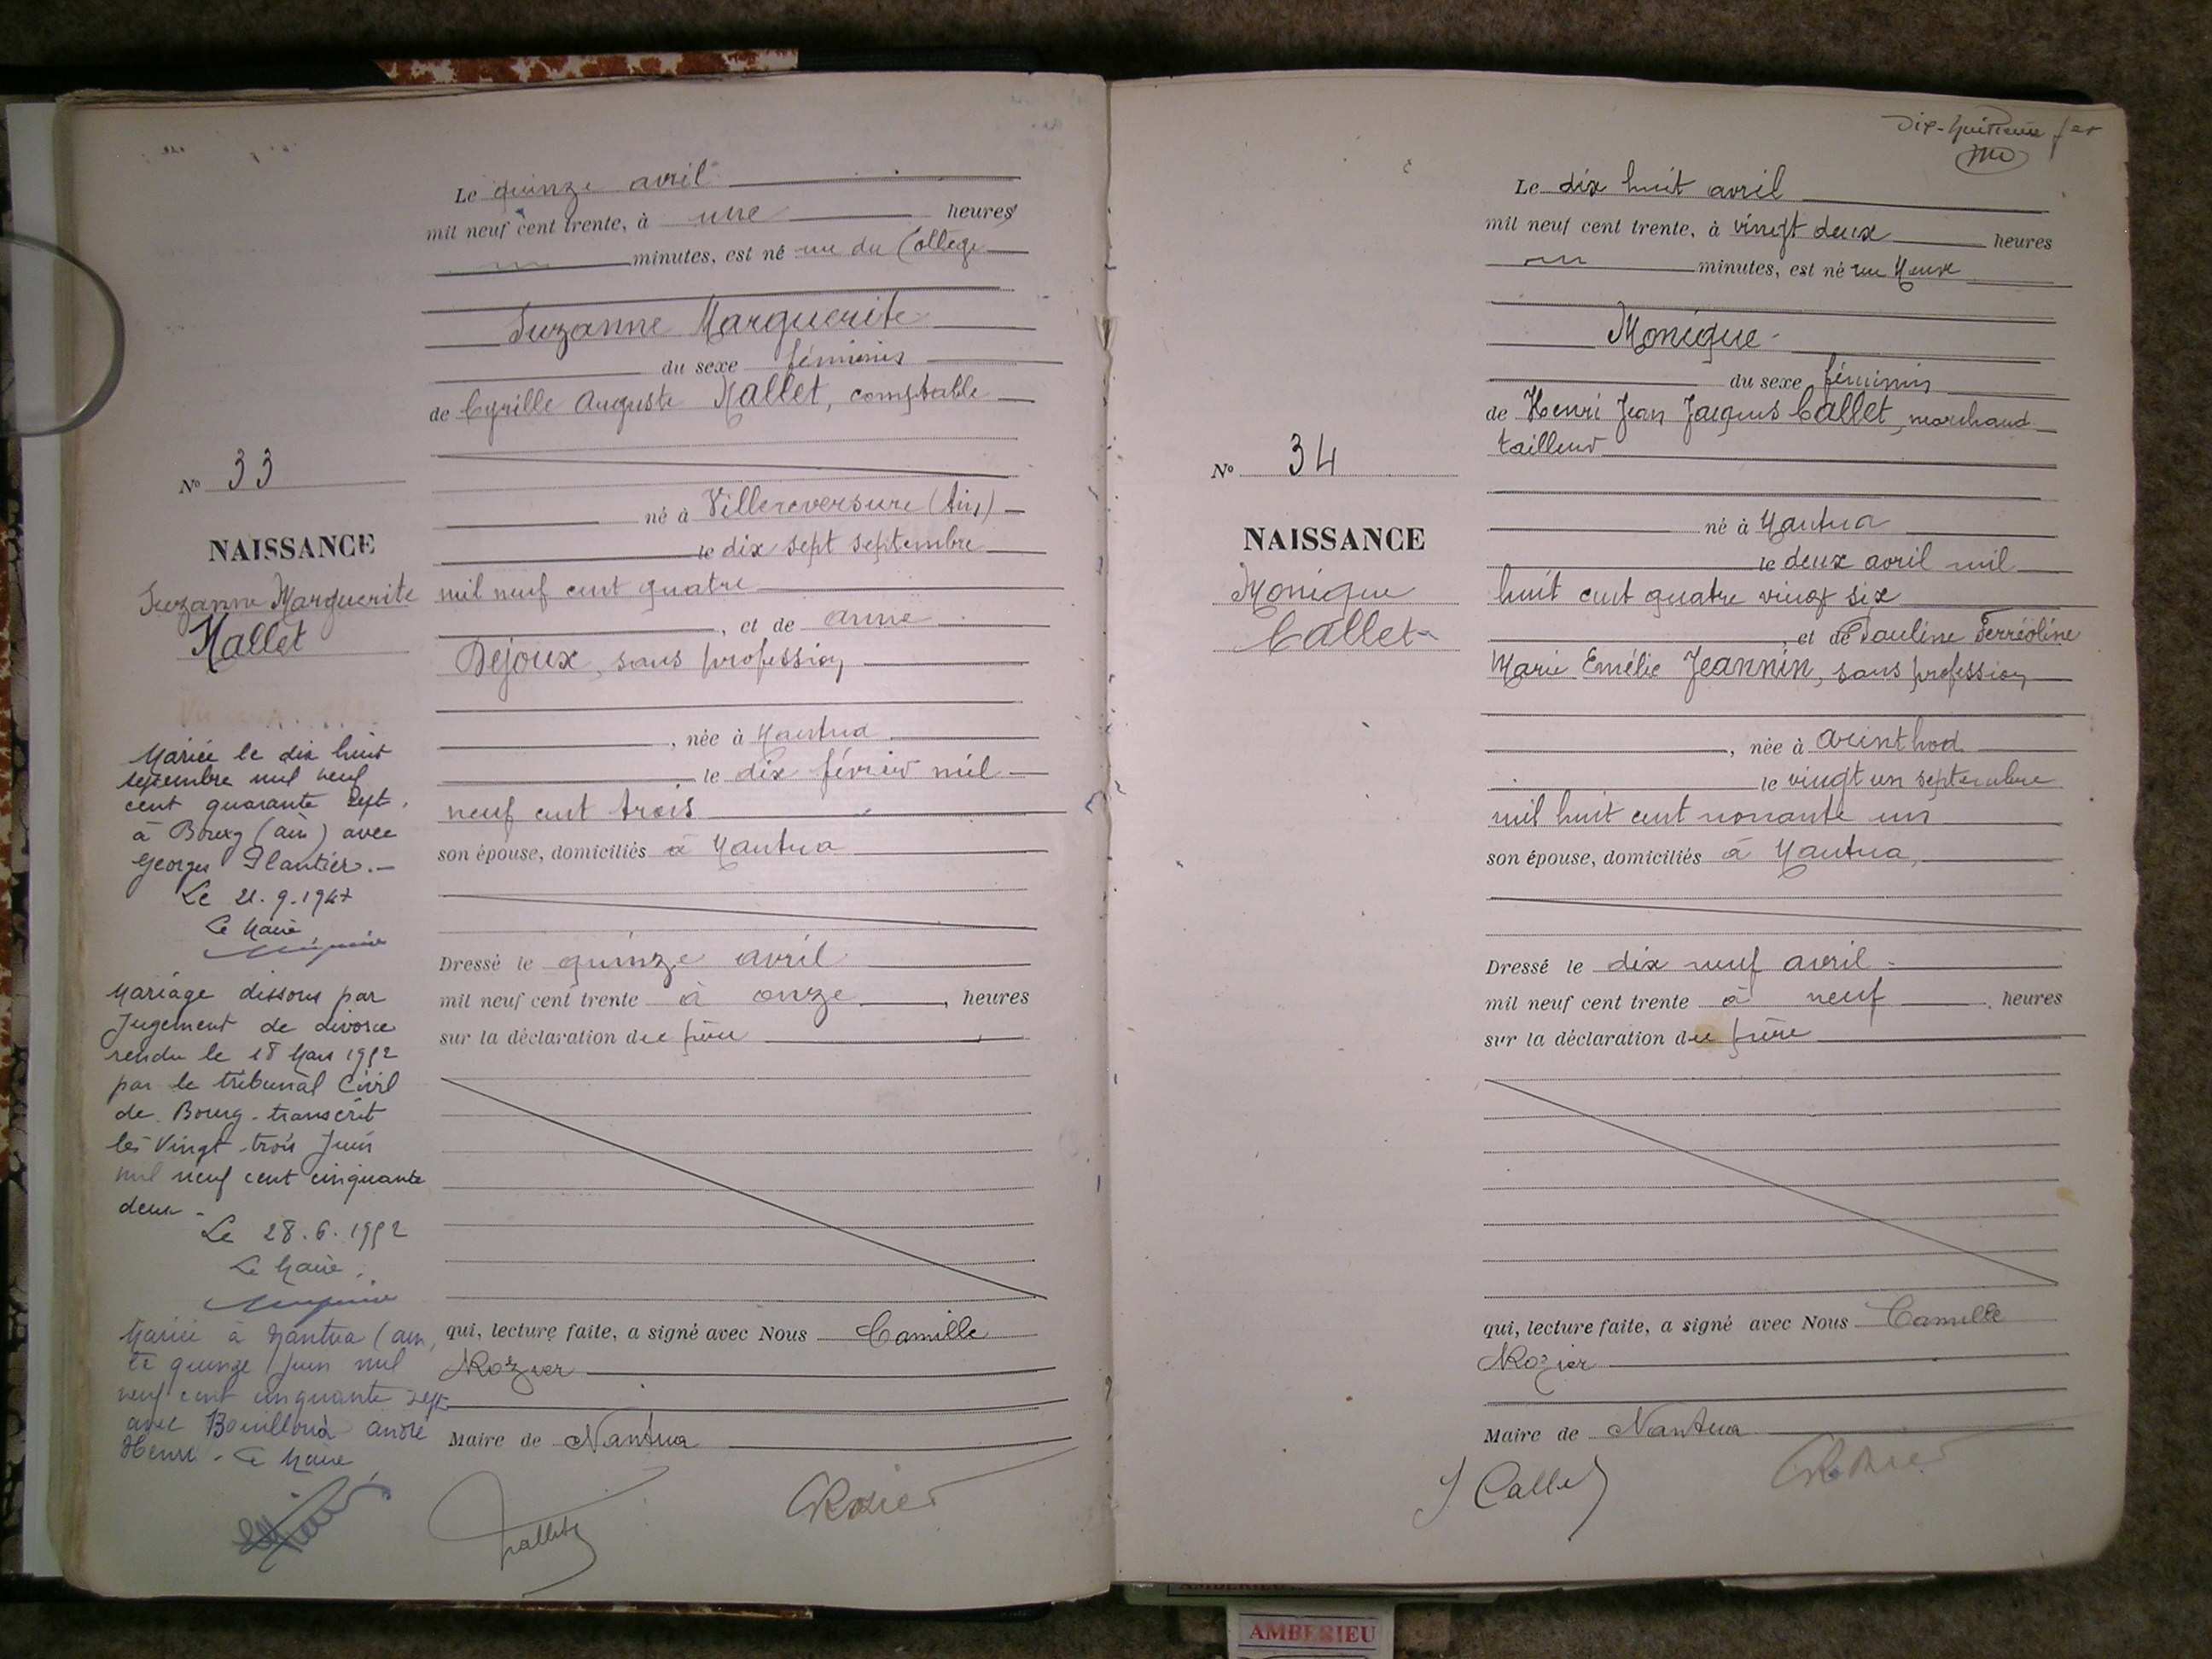 Le quinze avril
mil neuf cent trente, à une heures
minutes, est né rue du Collège
Suzanne Marguerite
du sexe féminin
de Cyrille Auguste Hallet, comptable
N° 33
né à Villereversure (Ain)
NAISSANCE
le dix sept septembre
Suzanne Marguerite
Hallet
mil neuf cent quatre
, et de Anne
Dejoux, sans profession
, née à Nantua
le dix février mil
neuf cent trois
son épouse, domiciliés à Nantua
Mariée le dix huit
septembre mil neuf
cent quarante sept
à Bourg (Ain) avec
Georges Plantier.-
Le 21.9.1947
Le Maire
Dressé le quinze avril
mil neuf cent trente à onze, heures
sur la déclaration du père
Mariage dissous par
Jugement de divorce
rendu le 18 Mars 1952
par le tribunal Civil
de Bourg - transcrit
les Vingt-trois Juin
mil neuf cent cinquante
deux -
Le 28.6.1952
Le Maire
Mariée à Nantua (Ain,
le quinze Juin mil
neuf cent cinquante sept
avec André
Henri - Le Maire
qui, lecture faite, a signé avec Nous Camille
Rozier
Maire de Nantua
Dix-huitième
Le dix huit avril
mil neuf cent trente, à vingt deux heures
minutes, est né rue Neuve
Monique
du sexe féminin
de Henri Jean Jacques Callet, marchand
tailleur
N° 34
né à Nantua
NAISSANCE
le deux avril mil
Monique
Callet
huit cent quatre vingt six
, et de Pauline Ferréoline
Marie Emélie Jeannin, sans profession
, née à Arinthod
le vingt un septembre
mil huit cent nonante un
son épouse, domiciliés à Nantua,
Dressé le dix neuf avril
mil neuf cent trente à neuf heures
sur la déclaration du père
qui, lecture faite, a signé avec Nous Camille
Rozier
Maire de Nantua
J Callet
AMBERIEU